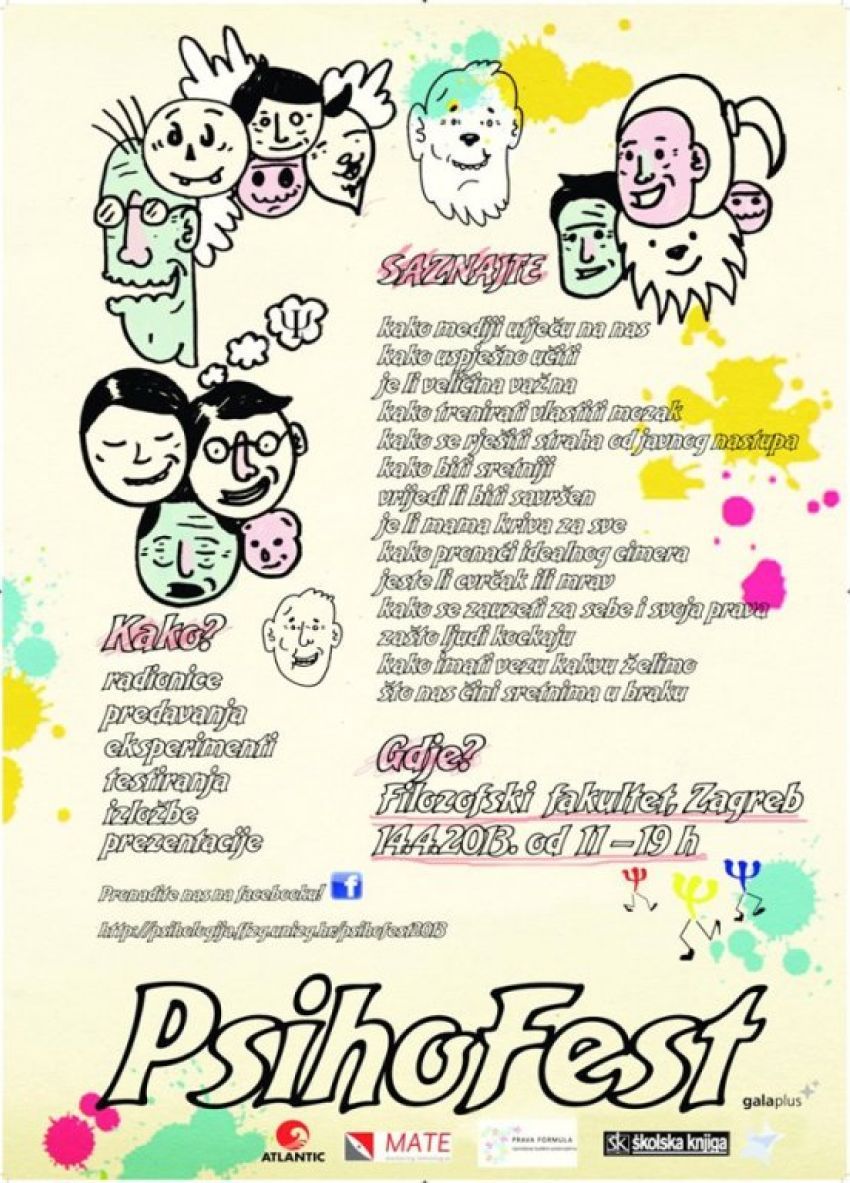 Ψ
SAZNAJTE
kako mediji utječu na nas
kako uspješno učiti
je li veličina važna
kako trenirati vlastiti mozak
kako se rješiti straha od javnog nastupa
kako biti sretniji
vrijedi li biti savršen
je li mama kriva za sve
kako pronaći idealnog cimera
jeste li cvrčak ili mrav
kako se zauzeti za sebe i svoja prava
zašto ljudi kockaju
kako imati vezu kakvu želimo
što nas čini sretnima u braku
Kako?
radionice
predavanja
eksperimenti
testiranja
izložbe
prezentacije
Gdje?
Filozofski fakultet, Zagreb
14.4.2013. od 11 – 19 h
Pronađite nas na facebooku! f
http://psihologija.ffzg.unizg.hr/psihofest2013
Ψ Ψ Ψ
PsihoFest
galaplus
ATLANTIC
MATE
PRAVA FORMULA
SK školska knjiga